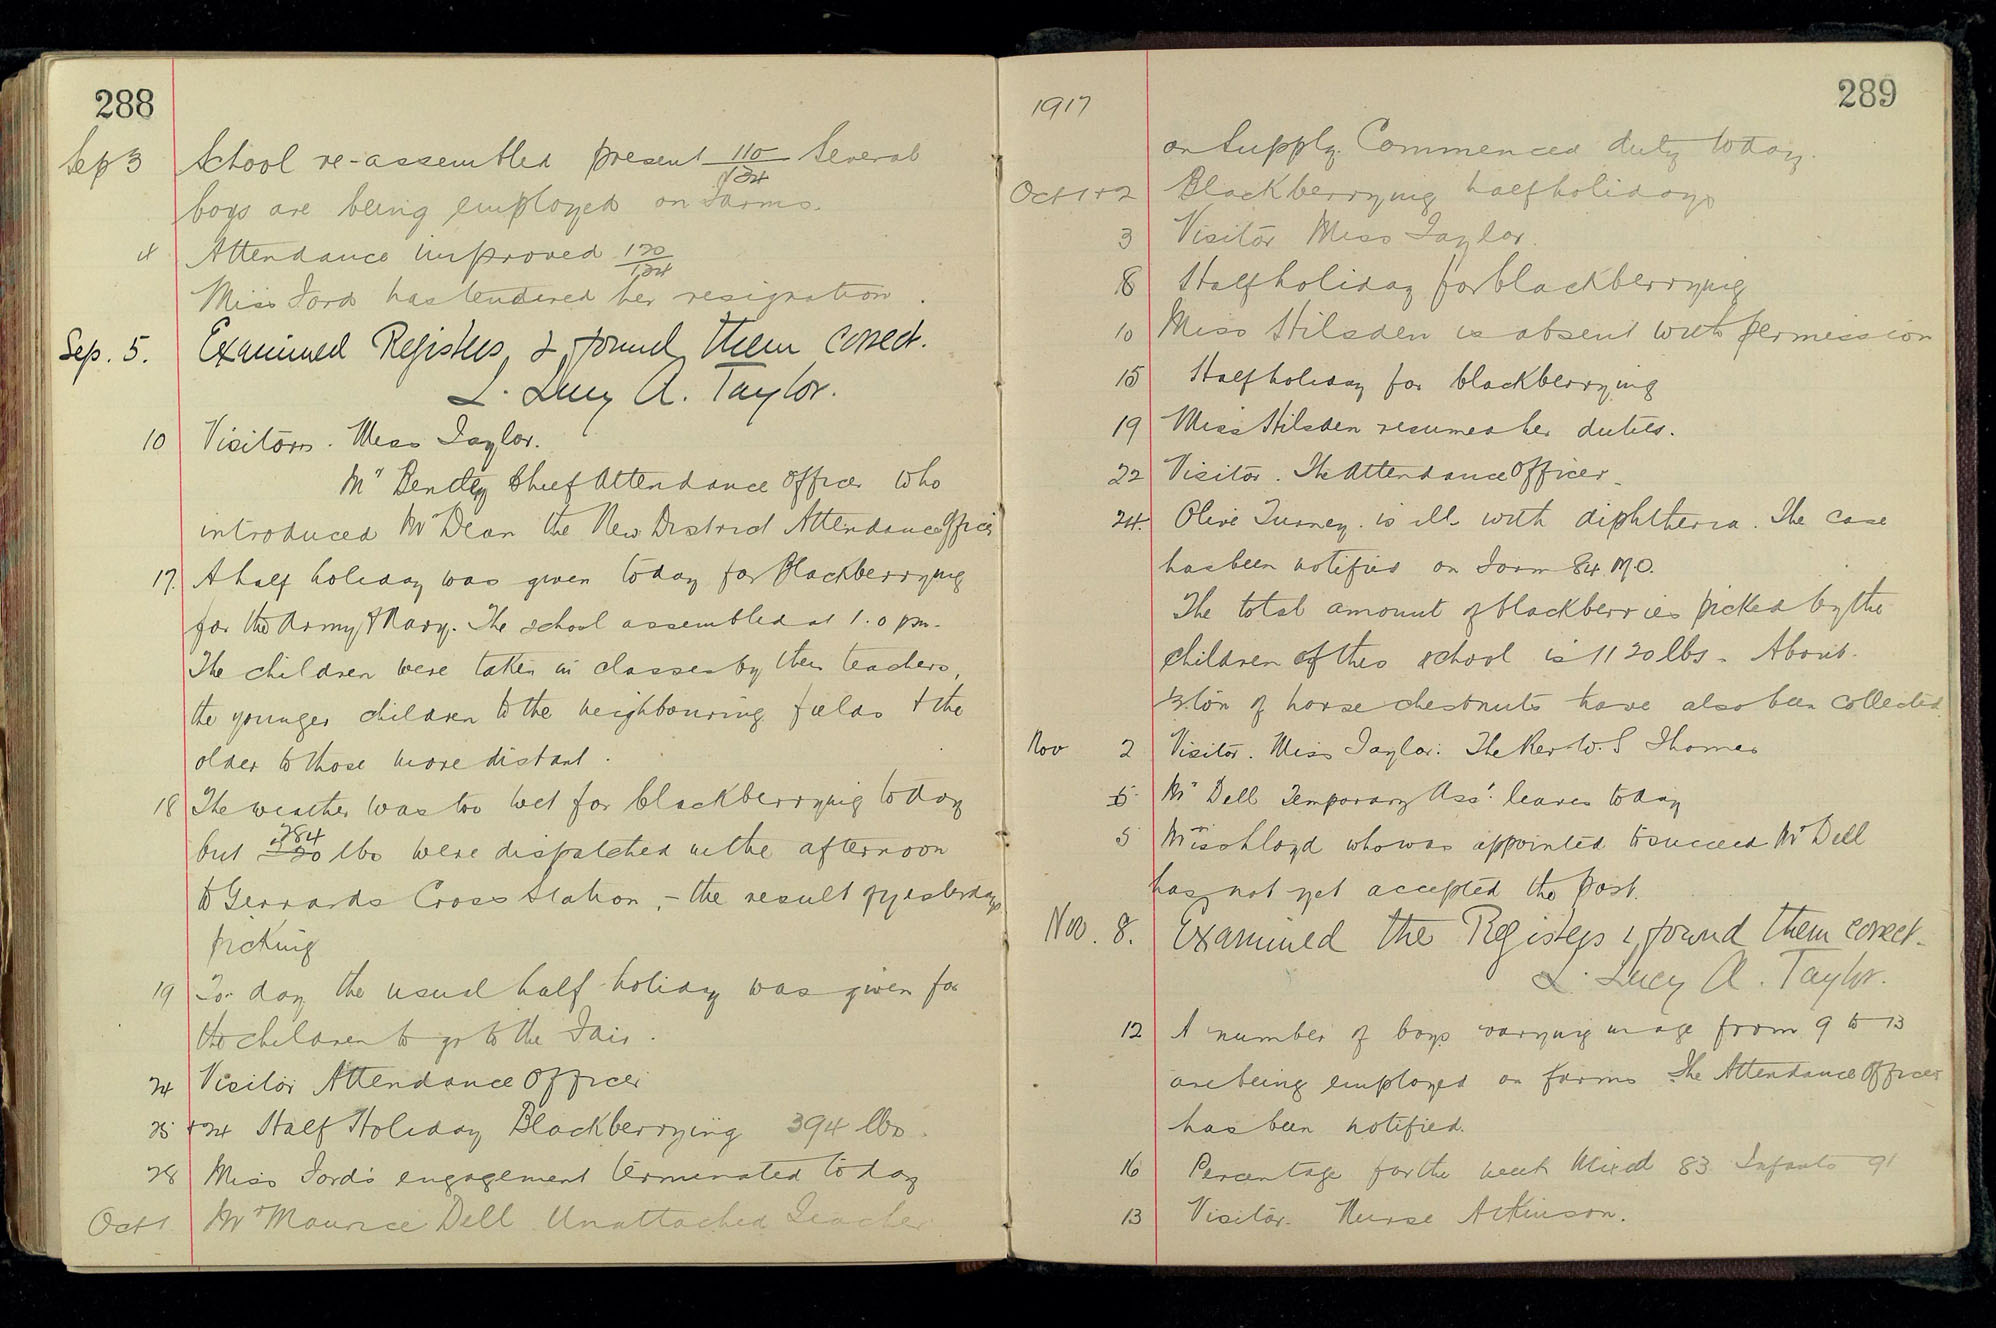 288
Sep 3 School re-assembled present 110/134 Several
boys are being employed on Farms.
4 Attendance improved 120/134
Miss Ford has tendered her resignation.
Sep. 5. Examined Registers & found them correct.
L. Lucy A. Taylor.
10 Visitors. Miss Taylor.
Mr Bentley Chief Attendance Officer who
introduced Mr Dean the New District Attendance Officer
17. A half holiday was given today for Blackberrying
for the Army & Navy. The school assembled at 1.0 pm.
The children were taken in classes by their teachers,
the younger children to the neighbouring fields & the
older to those more distant.
18 The weather was too wet for blackberrying today
284
but lbs were dispatched in the afternoon
to Gerrards Cross Station, - the result of yesterday's
picking
19 To-day the usual half holiday was given for
the children to go to the Fair.
24 Visitor Attendance Officer
25 + 24 Half Holiday Blackberrying 394 lbs.
28 Miss Ford's engagement terminated today
Oct 1 Mr Maurice Dell Unattached Teacher
1917
289
on Supply. Commenced duty today.
Oct 1 + 2 Blackberrying half holidays
3 Visitor Miss Taylor.
8 Half holiday for blackberrying
10 Miss Hilsden is absent with permission
15 Half holiday for blackberrying
19 Miss Hilsden resumes her duties.
22 Visitor. The Attendance Officer.
24. Olive Turney. is ill with diphtheria. The case
has been notified on Form 84 M.O.
The total amount of blackberries picked by the
children of this school is 1120 lbs. About
½ ton of horse chestnuts have also been collected.
Nov 2 Visitor. Miss Taylor. The Rev W. S Thomas
5 Mr Dell Temporary Asst leaves today
5 Miss Lloyd who was appointed to succeed Mr Dell
has not yet accepted the post.
Nov. 8. Examined the Registers & found them correct.
L. Lucy A. Taylor.
12 A number of boys varying in age from 9 to 13
are being employed on farms. The Attendance Officer
has been notified.
16 Percentage for the week Mixed 83 Infants 91
13 Visitor. Nurse Atkinson.